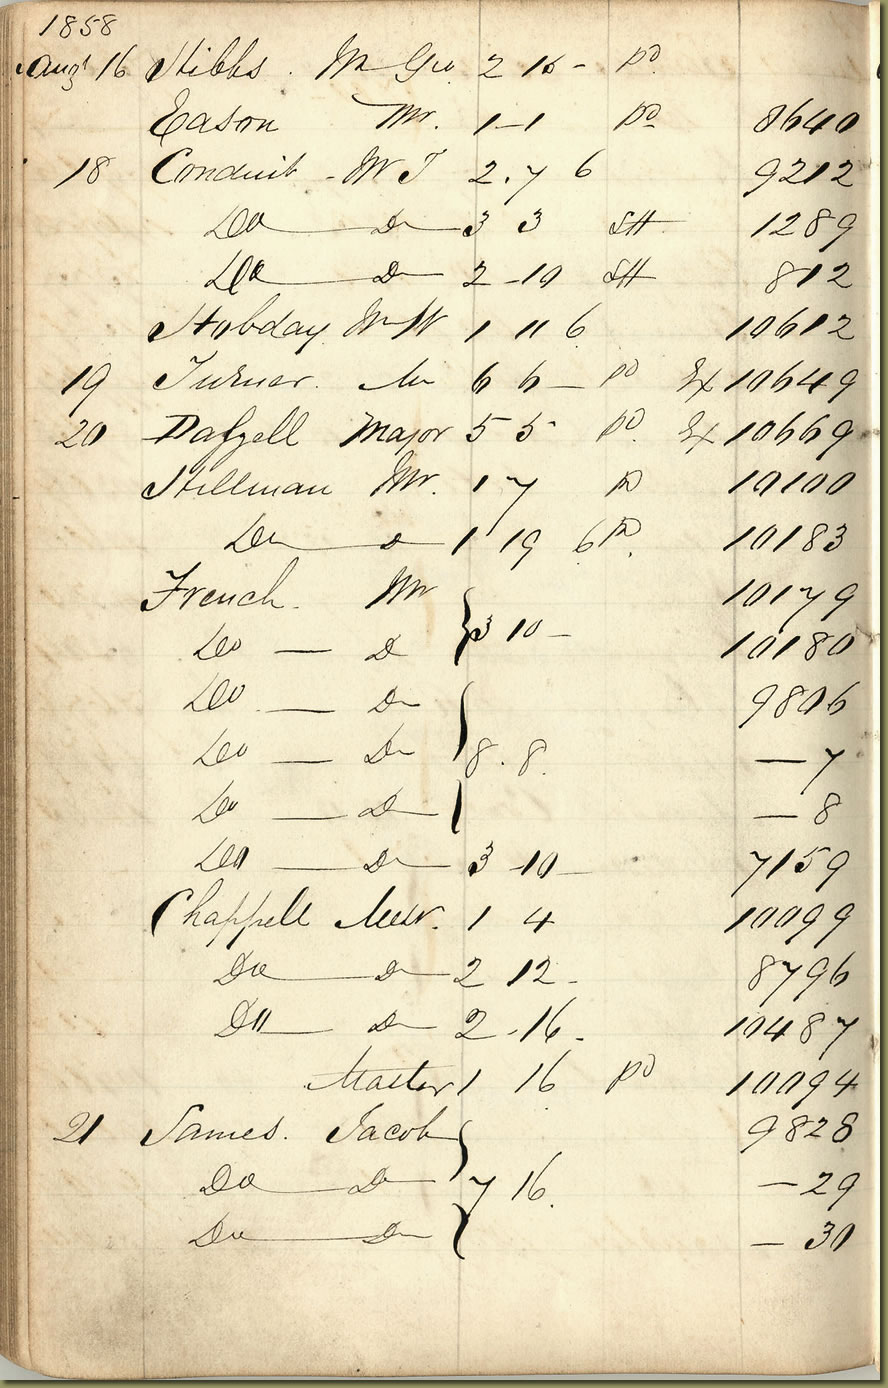 1858
Augt 16 Stibbs. Mr Geo 2 15 - pd
Eason Mr. 1 - 1 pd 8640
18 Conduit - Mr J 2 . 7 6 9212
Do — Do 3 3 1289
Do — Do 2 - 10 812
Hobday Mr W 1 11 6 10612
19 Turner. Mr 6 6 — pd Ex 10649
20 Dalzell Major 5 5 pd. Ex 10669
Stillman Mr. 1 7 pd 10100
Do — Do 1 19 6 pd. 10183
French. Mr 10179
Do — Do } 3 10 — 10180
Do — Do 9806
Do — Do } 8 . 8. — 7
Do — Do — 8
Do — Do 3 - 10 — 7159
Chappell 1 4 10099
Do — Do 2 12 - 8796
Do — Do 2 - 16 - 10487
Master 1 16 pd 10094
21 James. Jacob 9828
Do — Do } 7 16. — 29
Do — Do — 30